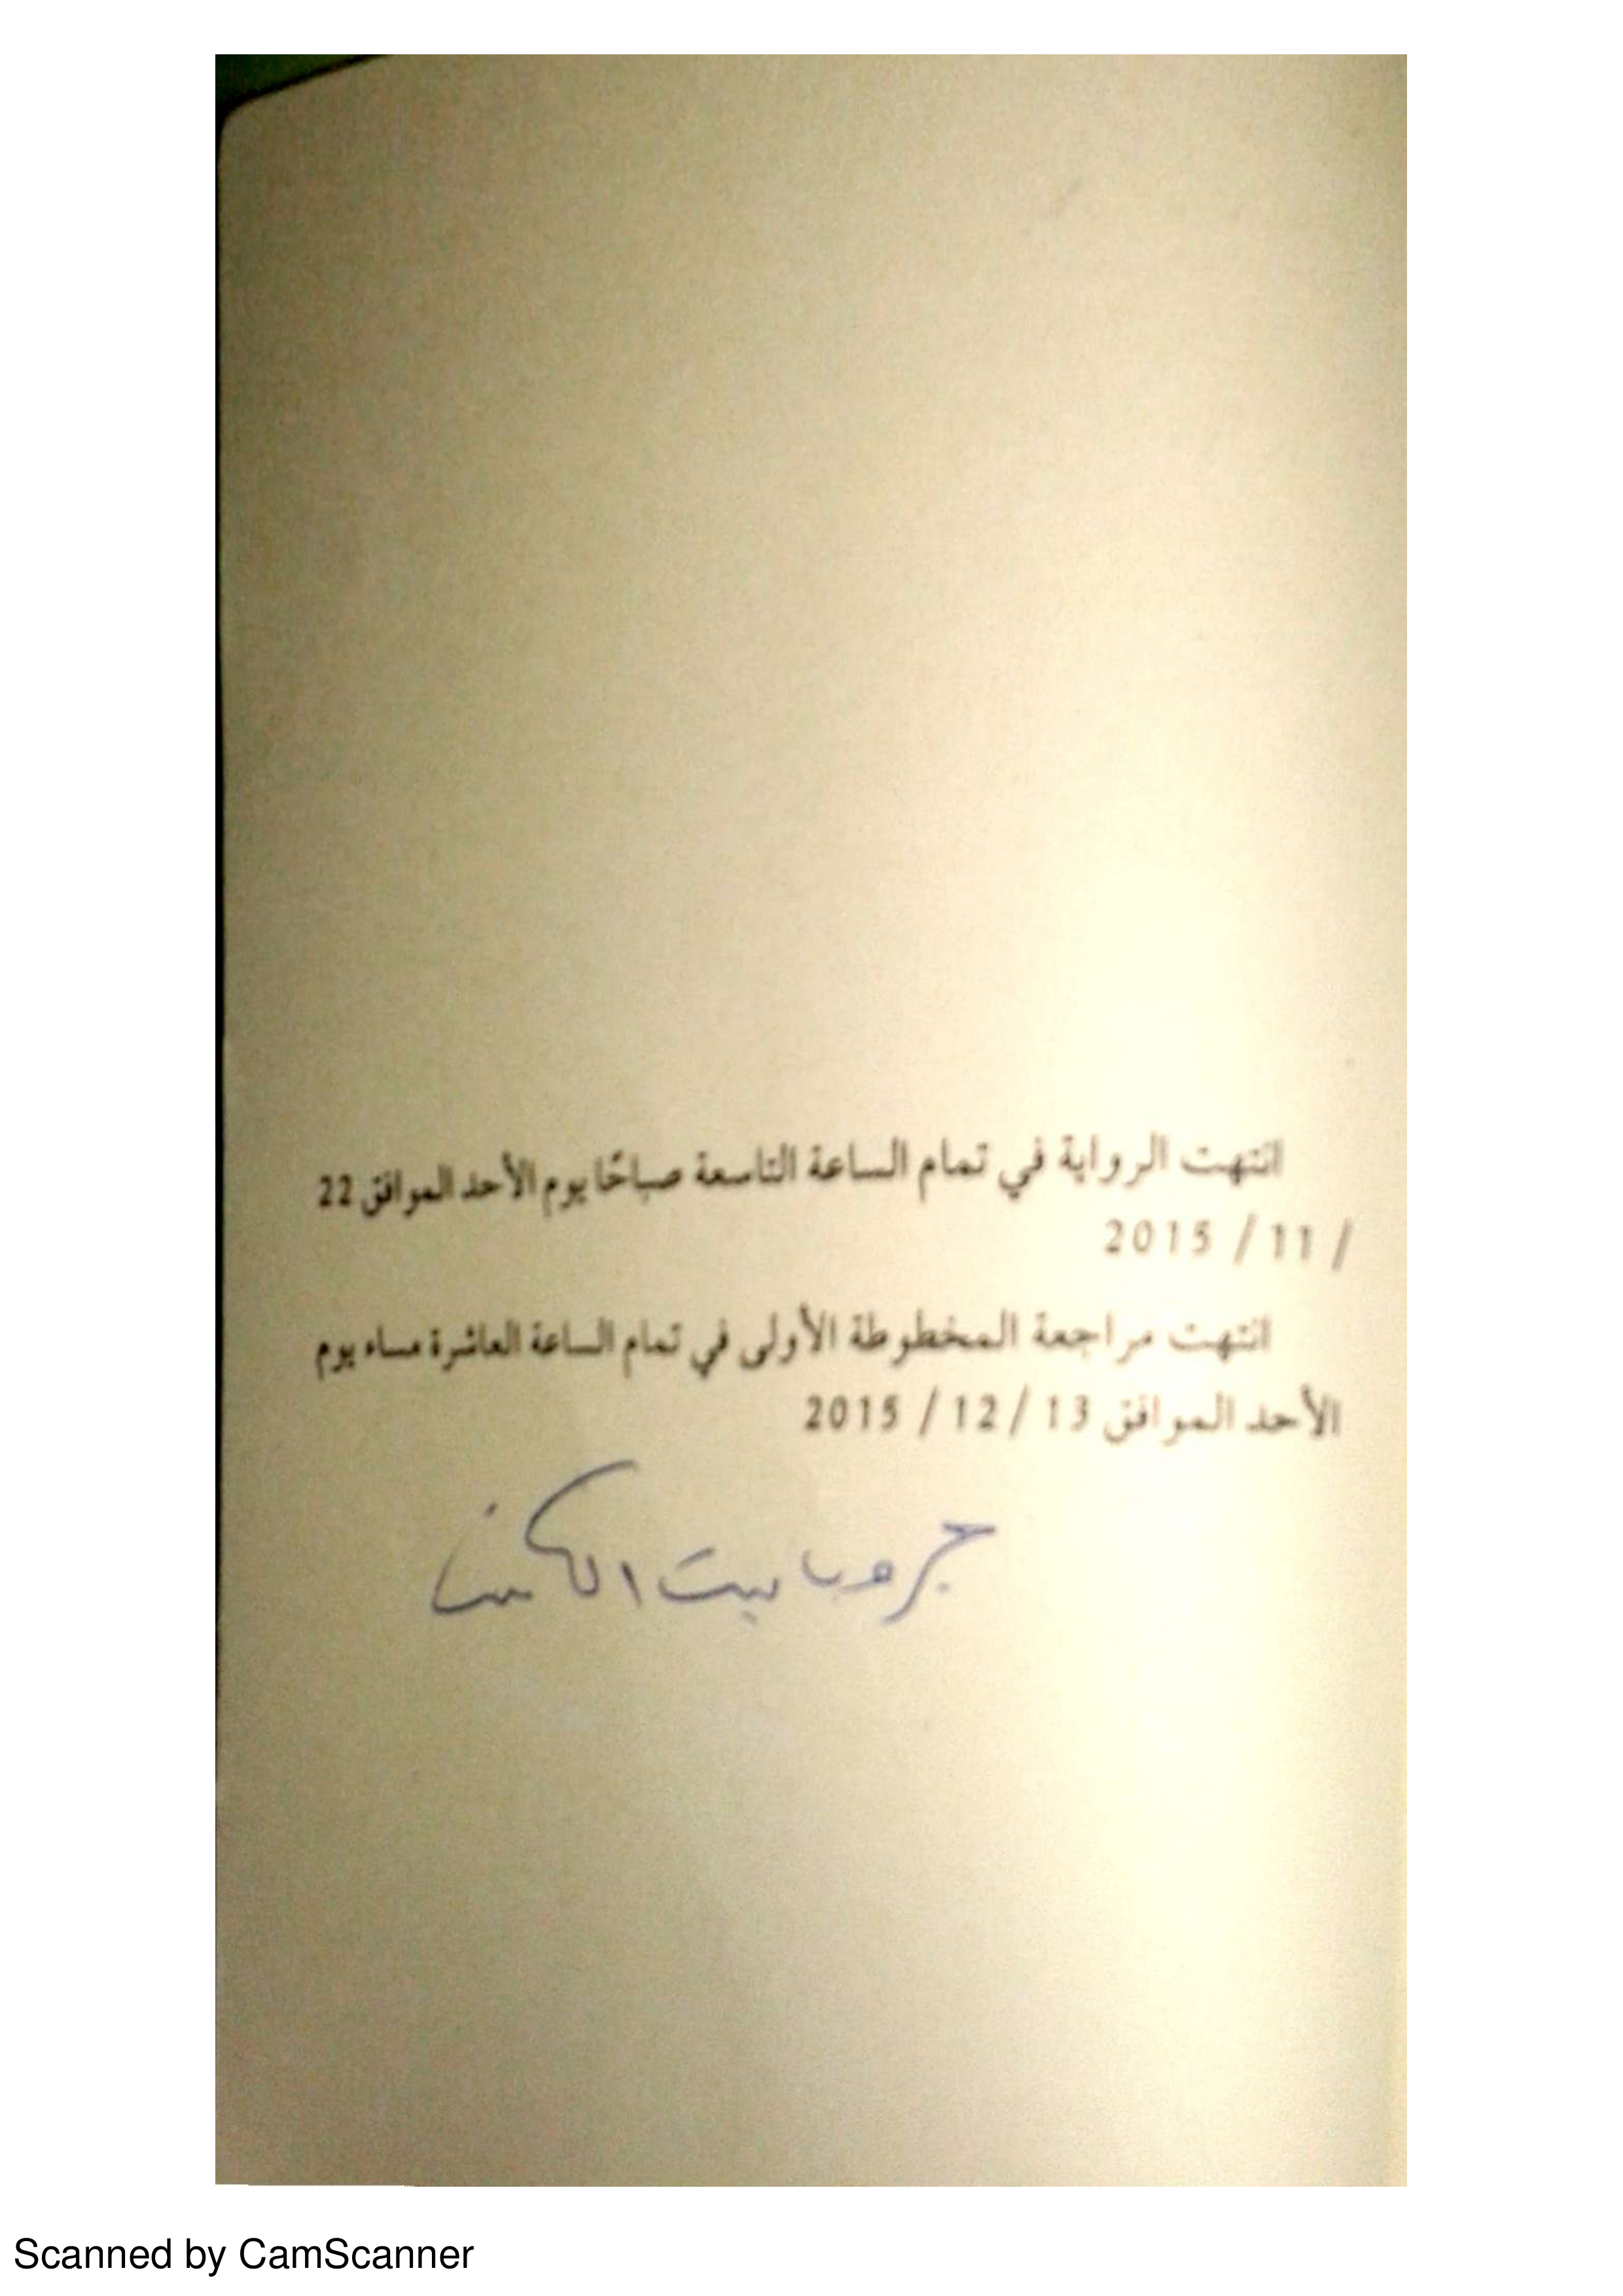 انتهت الرواية في تمام الساعة التاسعة صباحًا يوم الأحد الموافق 22
/ 11 / 2015
انتهت مراجعة المخطوطة الأولى في تمام الساعة العاشرة مساء يوم
الأحد الموافق 13 / 12 / 2015
جروب بيت الكتب
Scanned by CamScanner